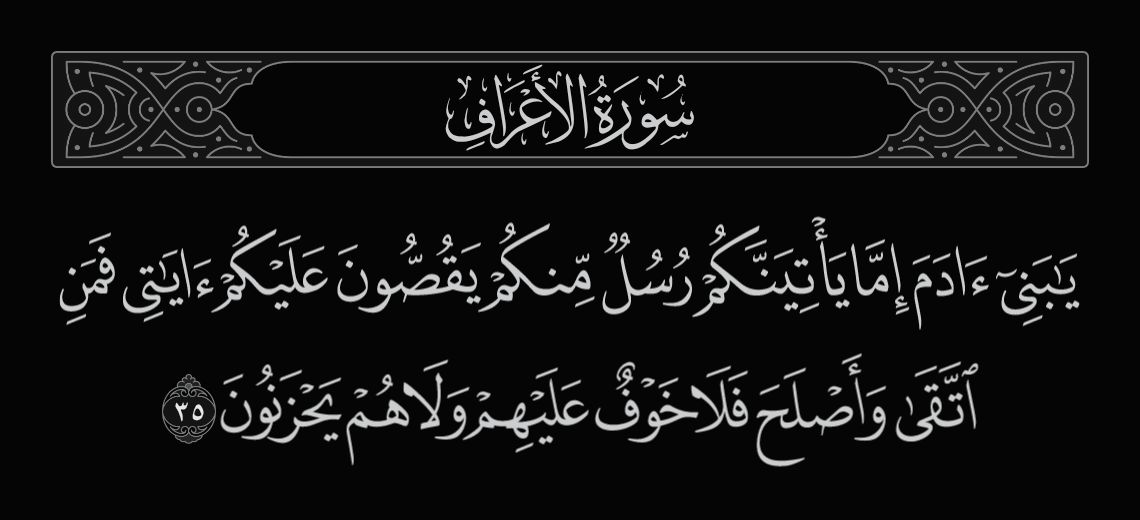 سُورَةُ الأَعۡرَافِ
يَـٰبَنِىٓ ءَادَمَ إِمَّا يَأۡتِيَنَّكُمۡ رُسُلٌ مِّنكُمۡ يَقُصُّونَ عَلَيۡكُمۡ ءَايَـٰتِى فَمَنِ
ٱتَّقَىٰ وَأَصۡلَحَ فَلَا خَوۡفٌ عَلَيۡهِمۡ وَلَا هُمۡ يَحۡزَنُونَ ٣٥